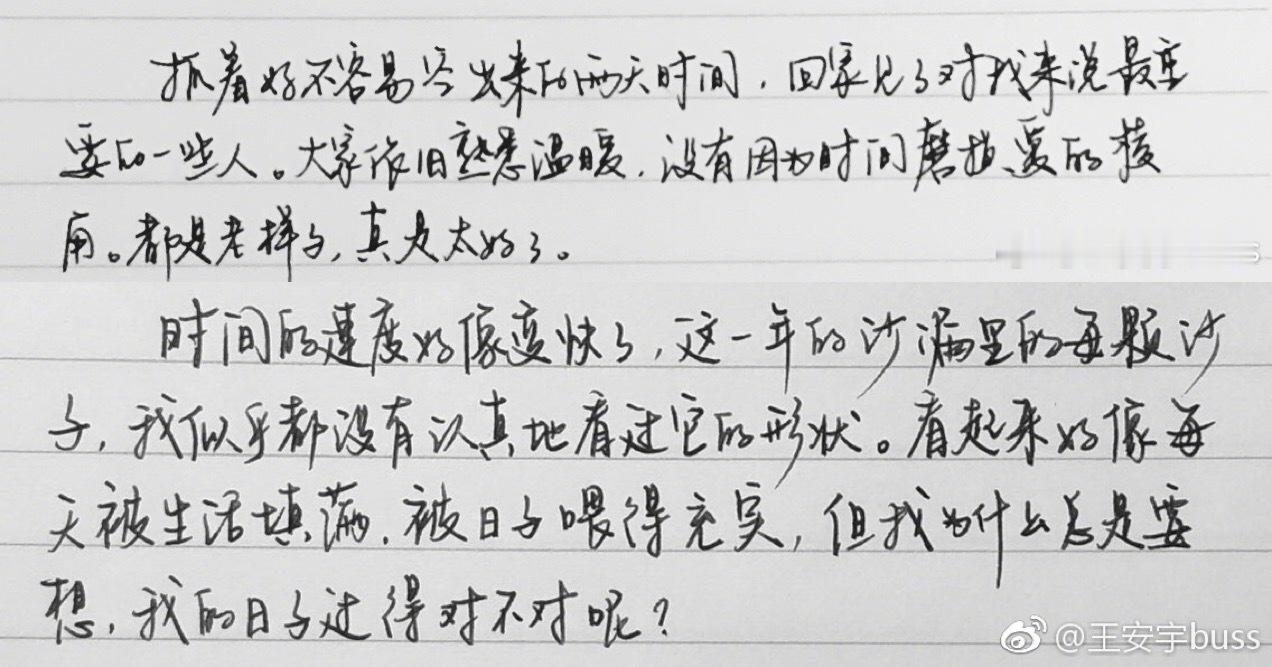 抓着好不容易空出来的两天时间，回家见了对我来说最重
要的一些人。大家依旧熟悉温暖，没有因为时间磨掉爱的棱
角。都是老样子，真是太好了。
时间的速度好像变快了，这一年的沙漏里的每颗沙
子，我似乎都没有认真地看过它的形状。看起来好像每
天被生活填满，被日子喂得充实，但我为什么总是要
想，我的日子过得对不对呢？
@王安宇buss